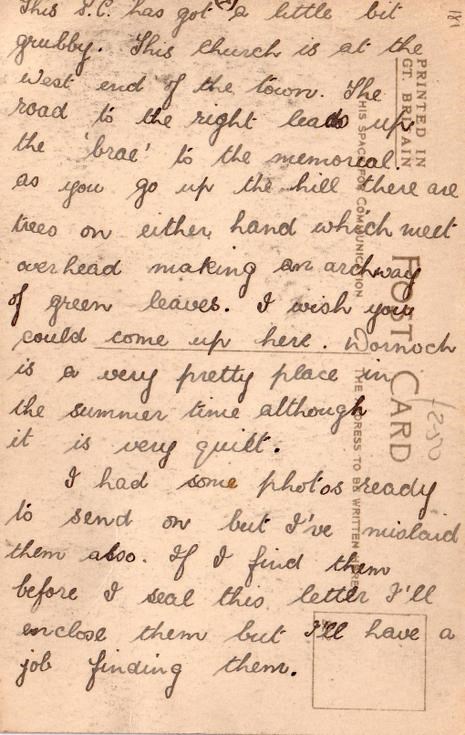 This S.C. has got a little bit
grubby. This church is at the
west end of the town. The
road to the right leads up
the 'brae' to the memorial.
as you go up the hill there are
trees on either hand which meet
overhead making an archway
of green leaves. I wish you
could come up here. Dornoch
is a very pretty place in
the summer time although
it is very quilt.
I had some photos ready
to send on but I've mislaid
them also. If I find them
before I seal this letter I'll
enclose them but I'll have a
job finding them.
PRINTED IN
GT. BRITAIN
POST CARD
THIS SPACE FOR COMMUNICATION
THE ADDRESS TO BE WRITTEN HERE